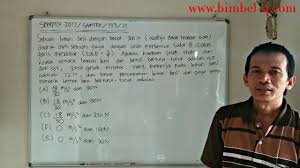 www.bimbel
SBMPTN 2017/ SAINTEK / 133/17
Sebuah lemari besi dengan berat 300 N (awalnya dalam keadaan diam)
ditarik oleh sebuah gaya dengan arah membentuk sudut θ di atas
garis mendatar (cos θ = 3/5). Apabila koefisien gesek statis dan
kinetik antara lemari besi dan lantai berturut-turut adalah
gaya gesek kinetik yang bekerja pada lemari besi
adalah 72 N, dan besar percepatan lemari besi dan gaya yang
(A) 18/30 m/s² dan 90 N
(B) 18/30 m/s² dan
(C) 18/30 m/s² dan 210 N
(D) 0 m/s² dan
(E) 0 m/s² dan 90 N